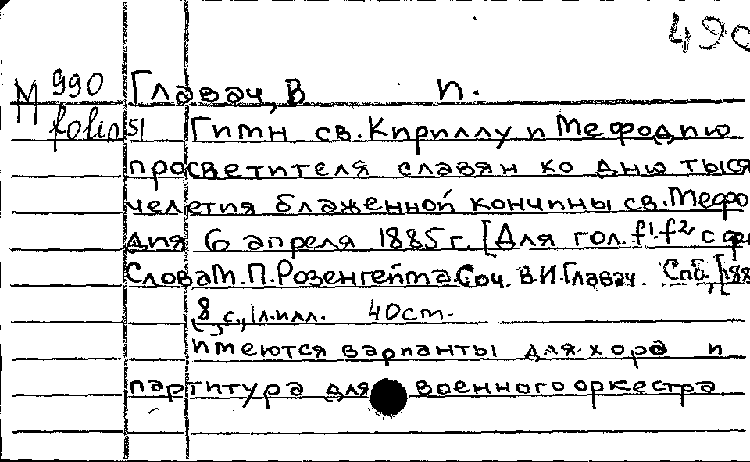 490
М 990 Главач, В п.
folio 51 Гимн св. Кириллу и Мефодию
просветителя славян ко дню тыся
челетия блаженной кончины св. Мефо
дия 6 апреля 1885 г. [Для гол. f¹-f² с фе
Слова М. П. Розенгейма. Соч. В. И. Главач. Спб., [188
8 с., 1 л. илл. 40 cm.
имеются варианты для хора и
партитура для военного оркестра